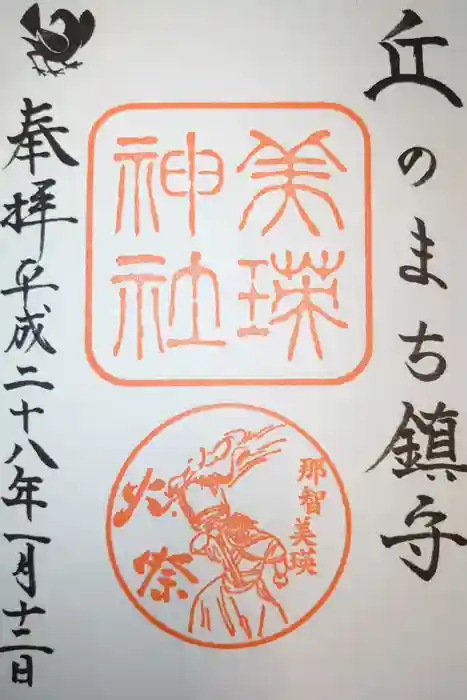 丘のまち鎮守
美瑛
神社
那智美瑛
火祭
奉拝平成二十八年一月十二日